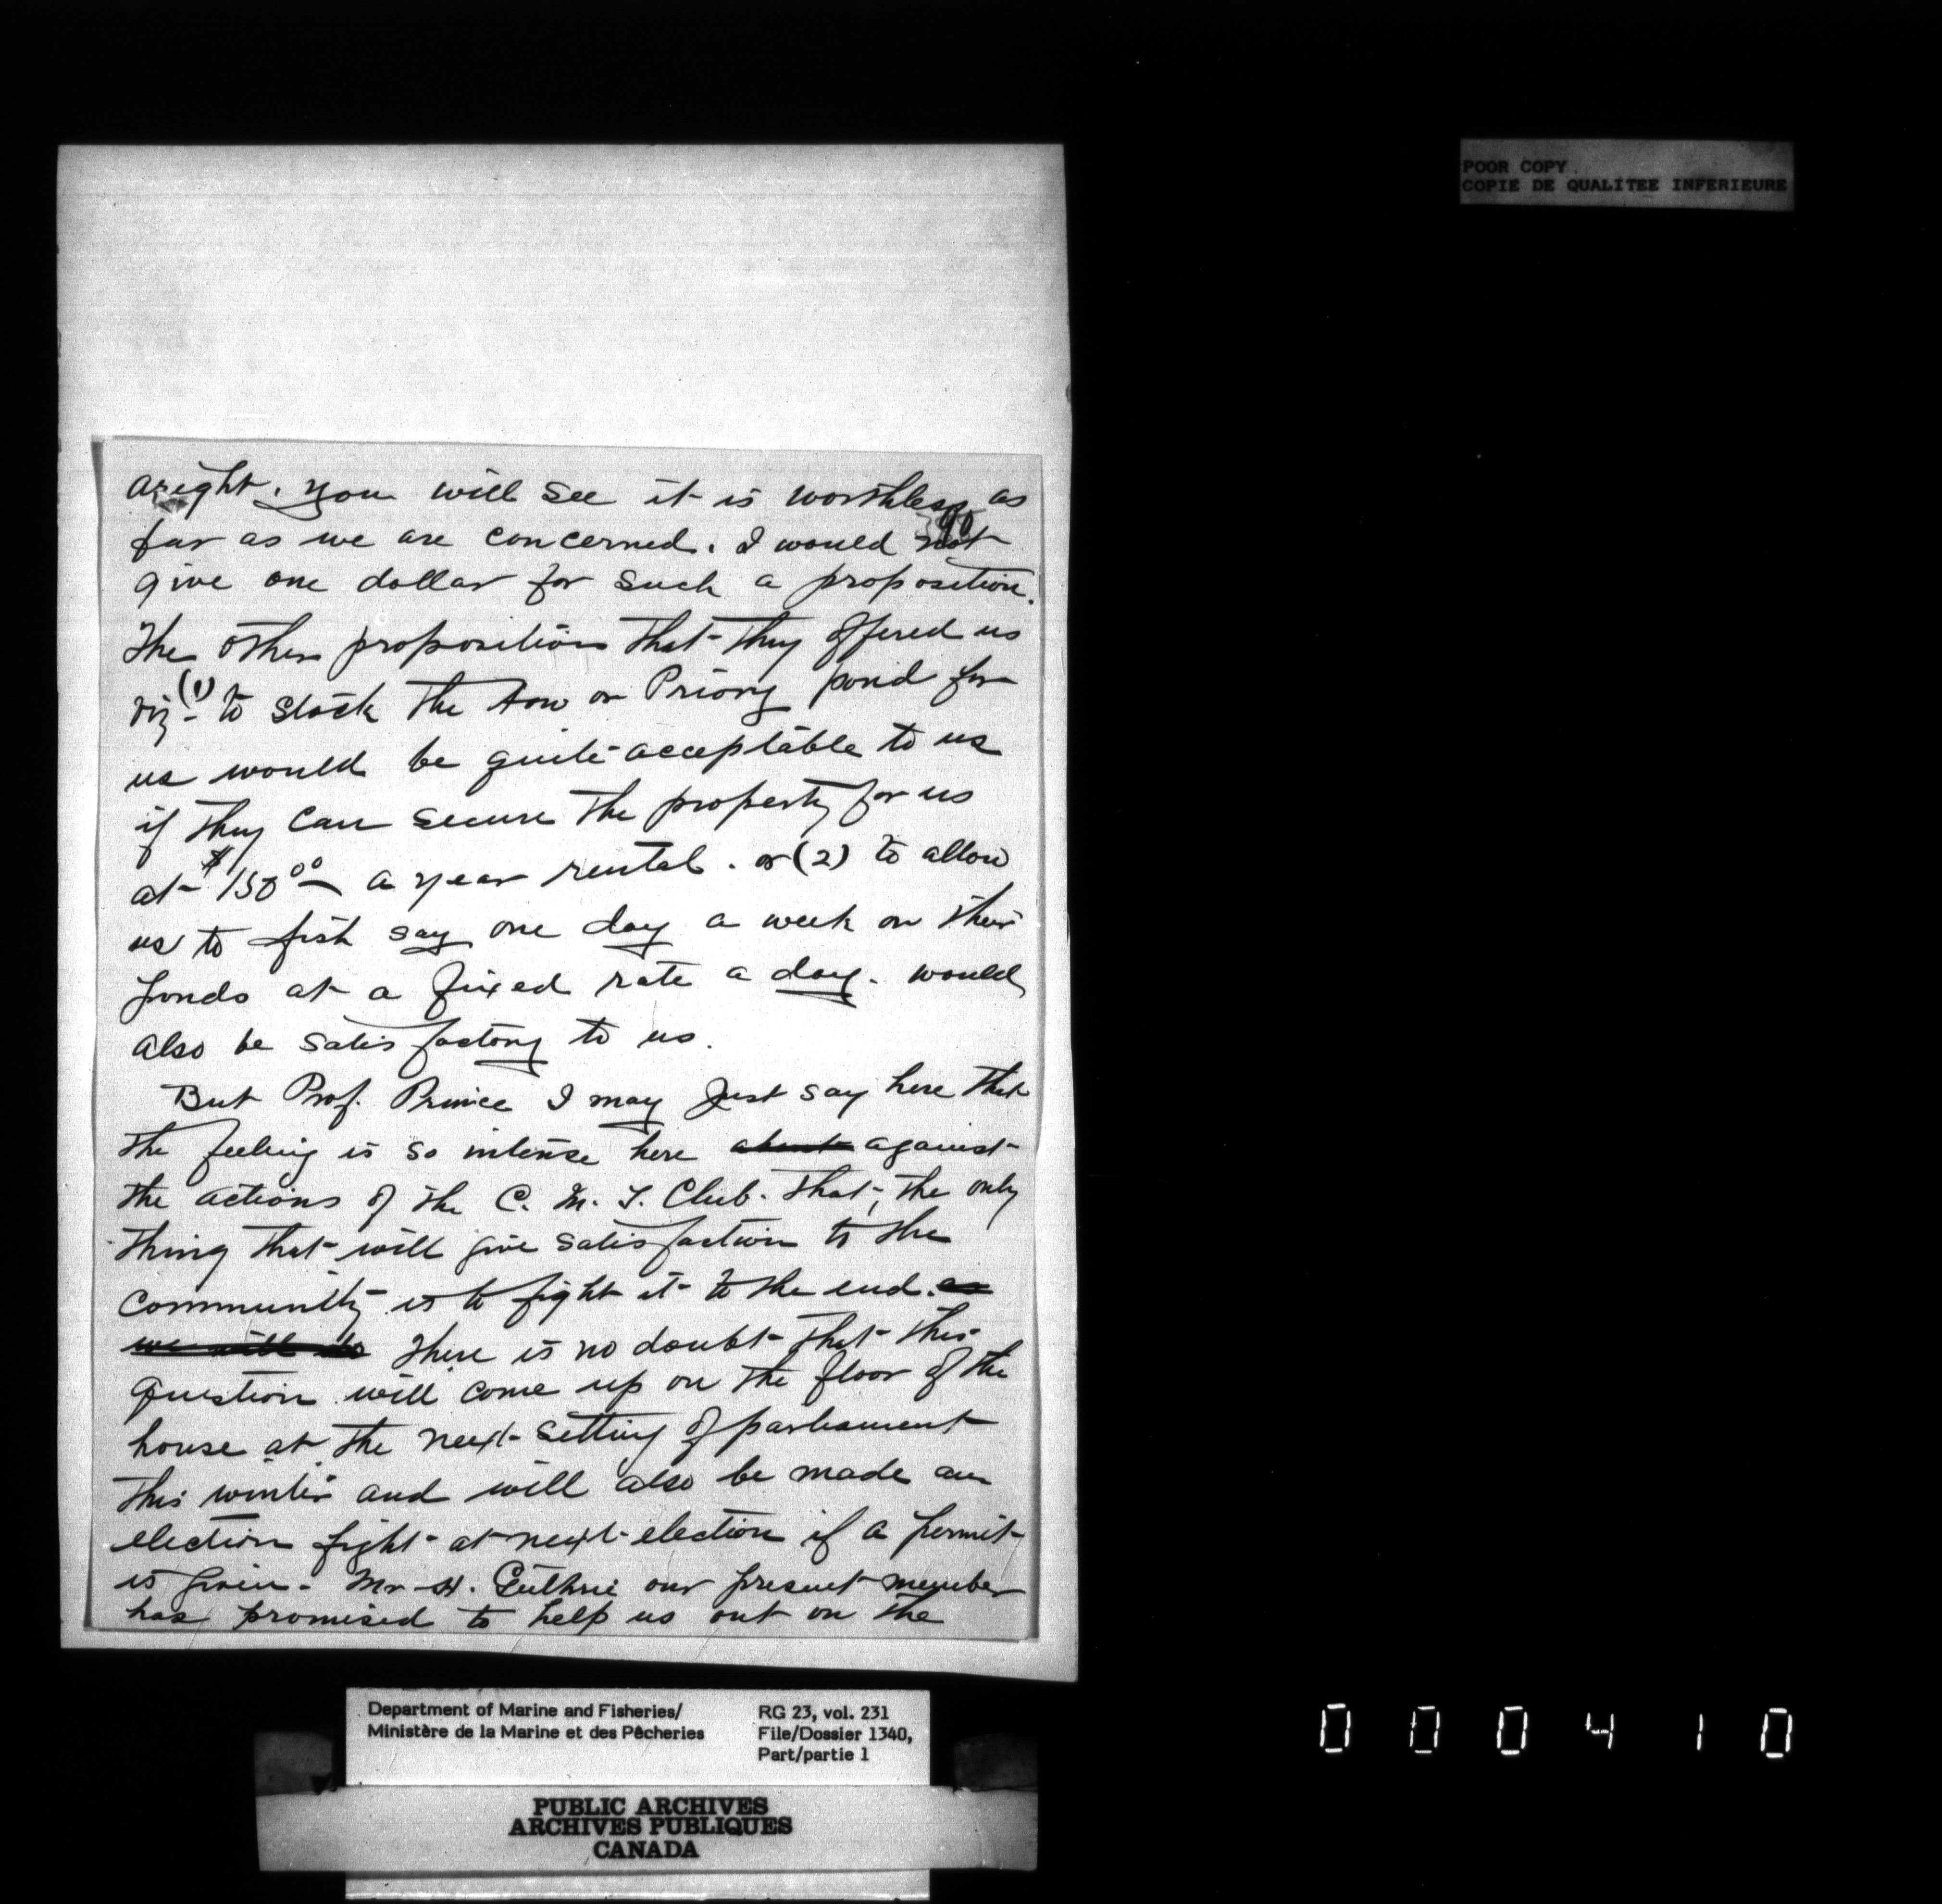 POOR COPY
COPIE DE QUALITEE INFERIEURE
aright. you will see it is worthless as
90
far as we are concerned. I would not
give one dollar for such a proposition.
The other proposition that they offered us
viz - (1) to stock the or Priory pond for
us would be quite acceptable to us
if they can secure the property for us
at $150 00 a year rental. or (2) to allow
us to fish say one day a week on their
ponds at a fixed rate a day. would
also be satisfactory to us.
But Prof. Prince I may just say here that
the feeling is so intense here about against
the actions of the C. M. T. Club. that, the only
thing that will give satisfaction to the
community is to fight it to the end. as
we will do There is no doubt that this
question will come up on the floor of the
house at the next setting of parliament
this winter and will also be made an
election fight at next election if a permit
is given. Mr H. Guthrie our present member
has promised to help us out on the
Department of Marine and Fisheries/
Ministère de la Marine et des Pêcheries
RG 23, vol. 231
File/Dossier 1340,
Part/partie 1
PUBLIC ARCHIVES
ARCHIVES PUBLIQUES
CANADA
000410